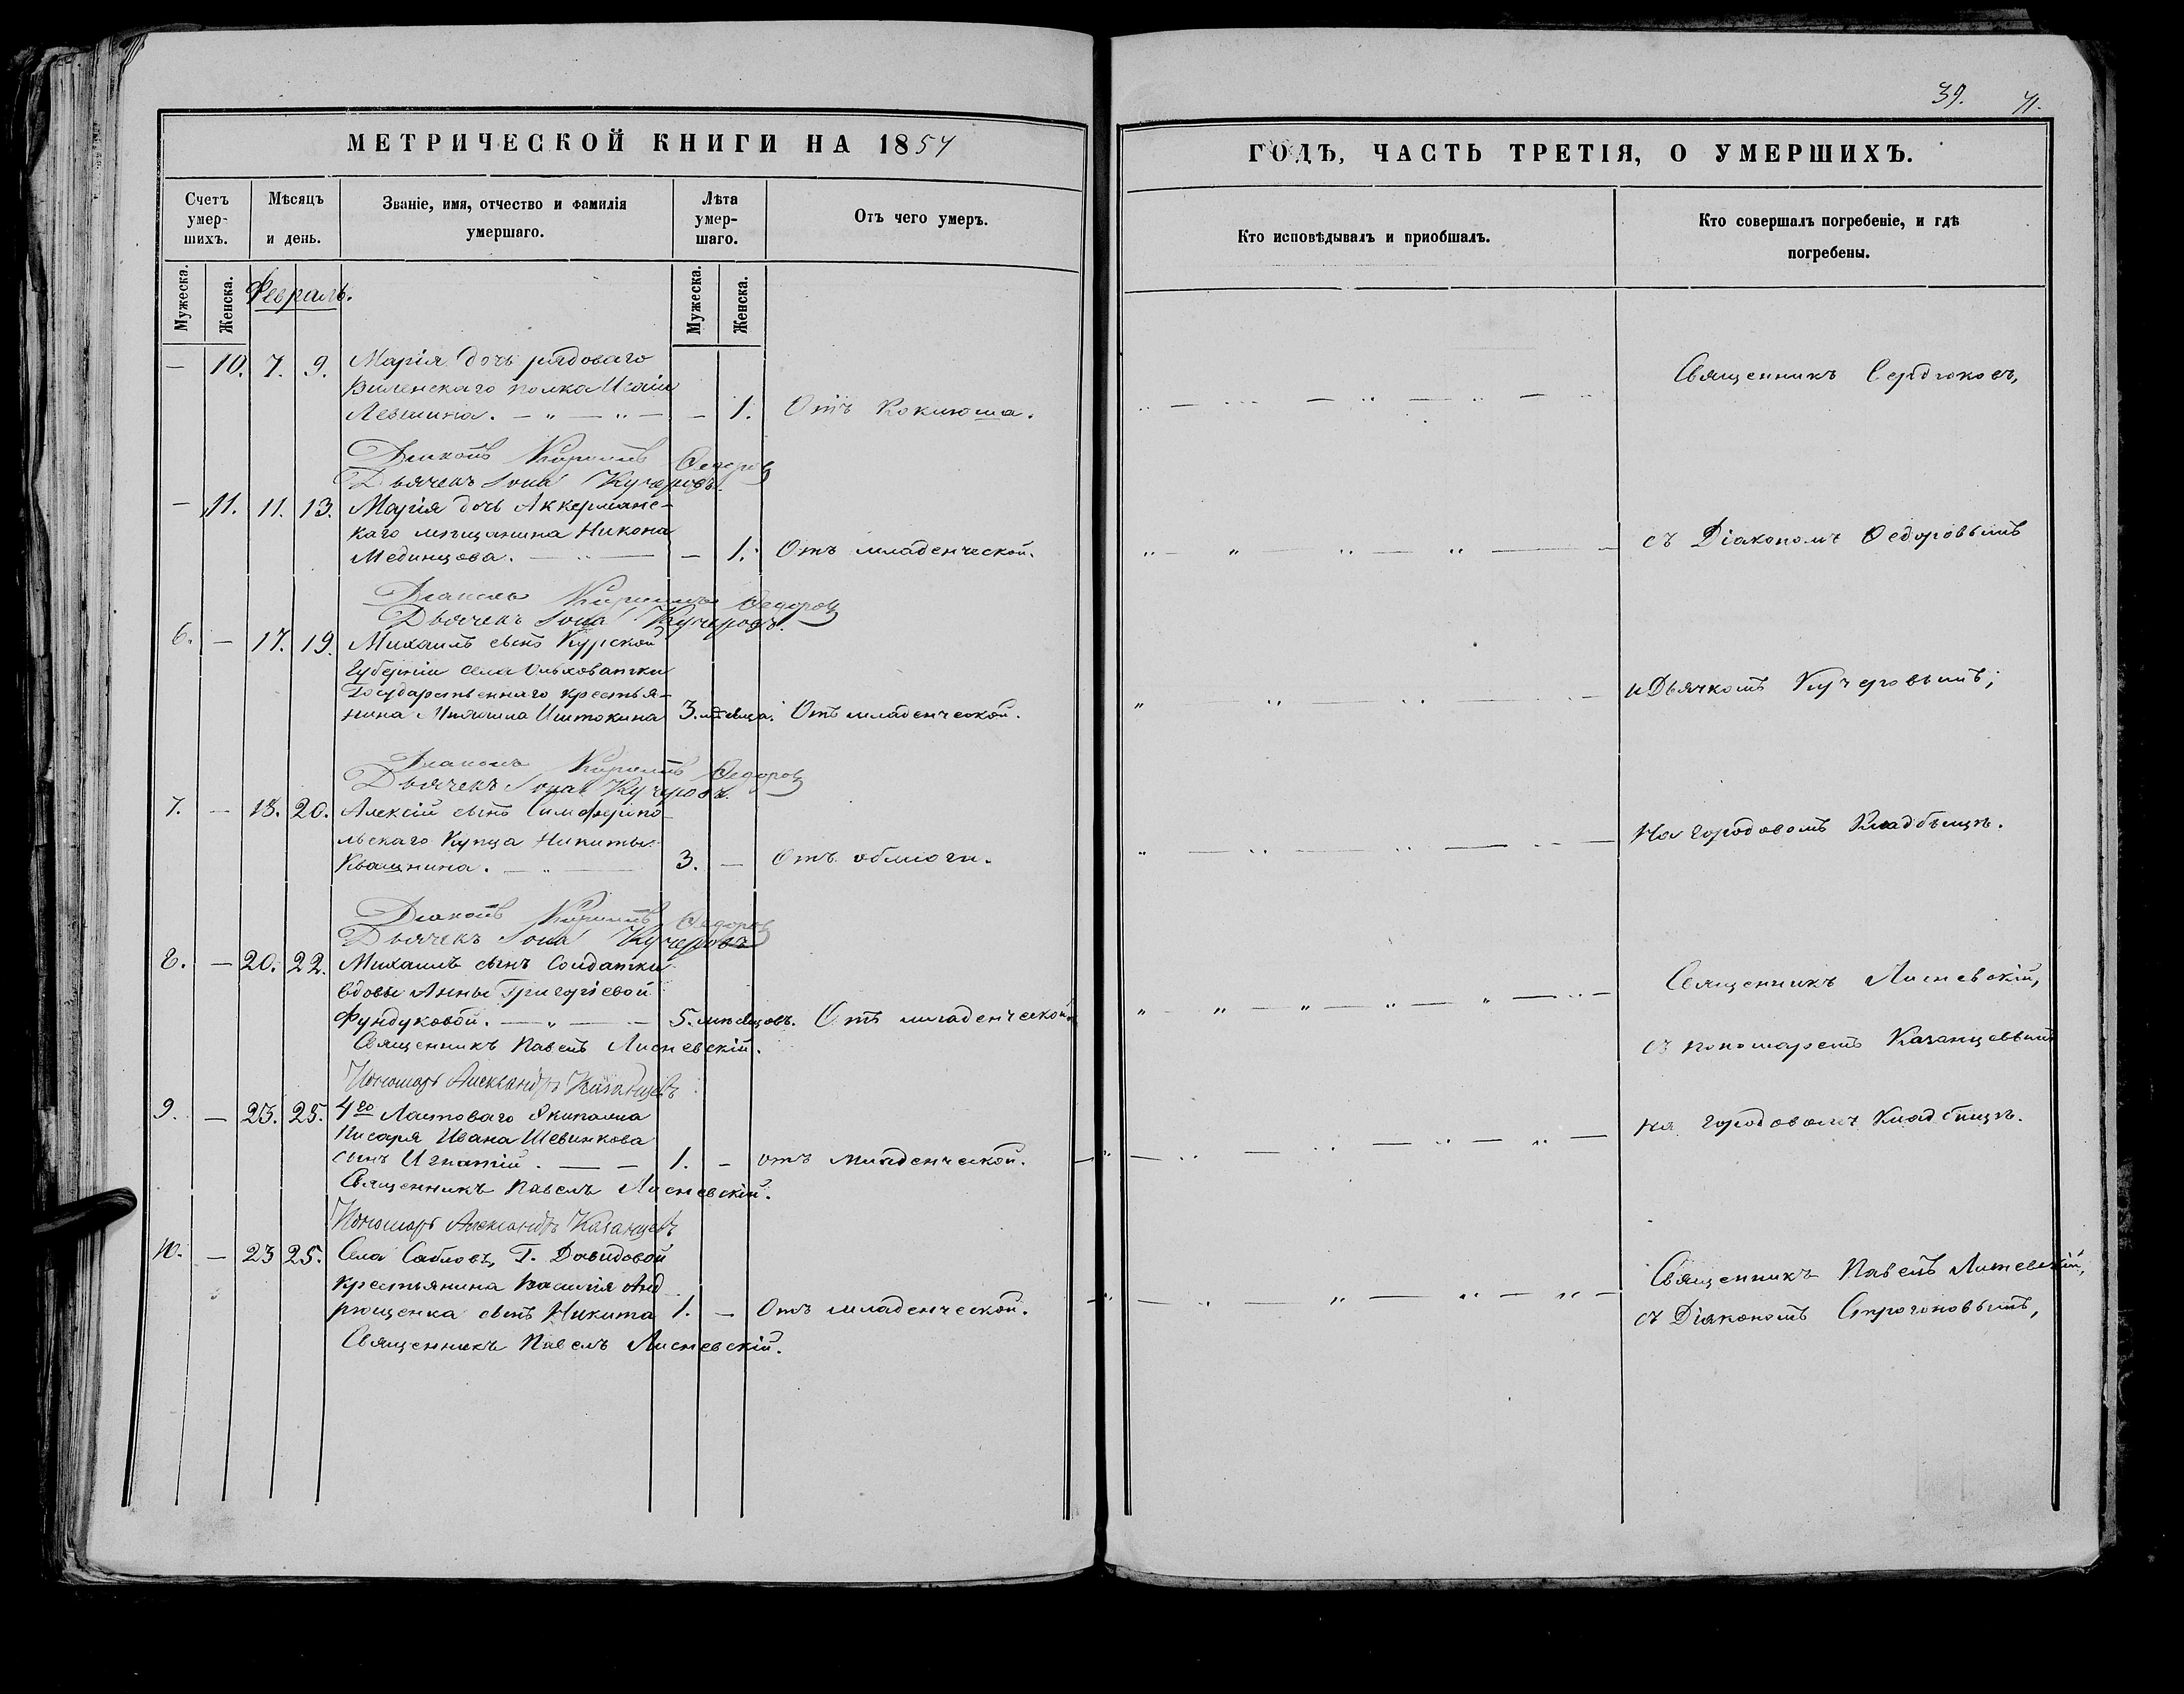 МЕТРИЧЕСКОЙ КНИГИ НА 1854
Счетъ умер-шихъ.
Мѣсяцъ и день.
Званіе, имя, отчество и фамилія умершаго.
Лѣта умер-шаго.
Отъ чего умеръ.
Мужеска.
Женска.
Мужеска.
Женска.
Февраль.
— 10. 7. 9. Марія дочь рядоваго
Виленскаго полка Исаіи
Левшина. — „ — „ — — 1. Отъ Коклюша.
Діаконъ Кириллъ Федоровъ
Дьячекъ Іона Кучеровъ.
— 11. 11. 13. Марія дочь Аккерманс-
каго мѣщанина Никона
Мединцова. — „ — — 1. Отъ младенческой.
Діаконъ Кириллъ Федоровъ
Дьячекъ Іона Кучеровъ.
6. — 17. 19. Михаилъ сынъ Курской
Губерніи села Ольховатки
Государственнаго крестья-
нина Иштокина 3. мѣсяца. Отъ младенческой.
Діаконъ Кириллъ Федоровъ
Дьячекъ Іона Кучеровъ.
7. — 18. 20. Алексій сынъ Симферопо-
льскаго Купца Никиты
Квашнина. — „ — 3. — Отъ
Діаконъ Кириллъ Федоровъ
Дьячекъ Іона Кучеровъ
8. — 20. 22. Михаилъ сынъ Солдатки
вдовы Анны Григорьевой
Фундуковой. — „ — 5. мѣсяцовъ. Отъ младенческой.
Священникъ Павелъ Лисневскій.
Пономарь Александръ Казанцевъ
9. — 23. 25. 4го Ластоваго Экипажа
Писаря Ивана Шевинкова
сынъ Игнатій. — — 1. — отъ младенческой.
Священникъ Павелъ Лисневскій.
Пономарь Александръ Казанцевъ
10. — 23 25. Села Сабловъ, Г. Давидовой
Крестьянина Василія Анд
рющенка сынъ Никита 1. — Отъ младенческой.
Священникъ Павелъ Лисневскій.
39. 41.
ГОДЪ, ЧАСТЬ ТРЕТІЯ, О УМЕРШИХЪ.
Кто исповѣдывалъ и приобщалъ.
Кто совершалъ погребеніе, и гдѣ погребены.
Священникъ Сердюковъ,
съ Діакономъ Федоровымъ
и Дьячкомъ Кучеровымъ;
На городовомъ Кладбищѣ.
Священникъ Лисневскій,
съ пономаремъ Казанцевымъ
на городовомъ Кладбищѣ.
Священникъ Павелъ Лисневскій,
съ Діакономъ Строгоновымъ,